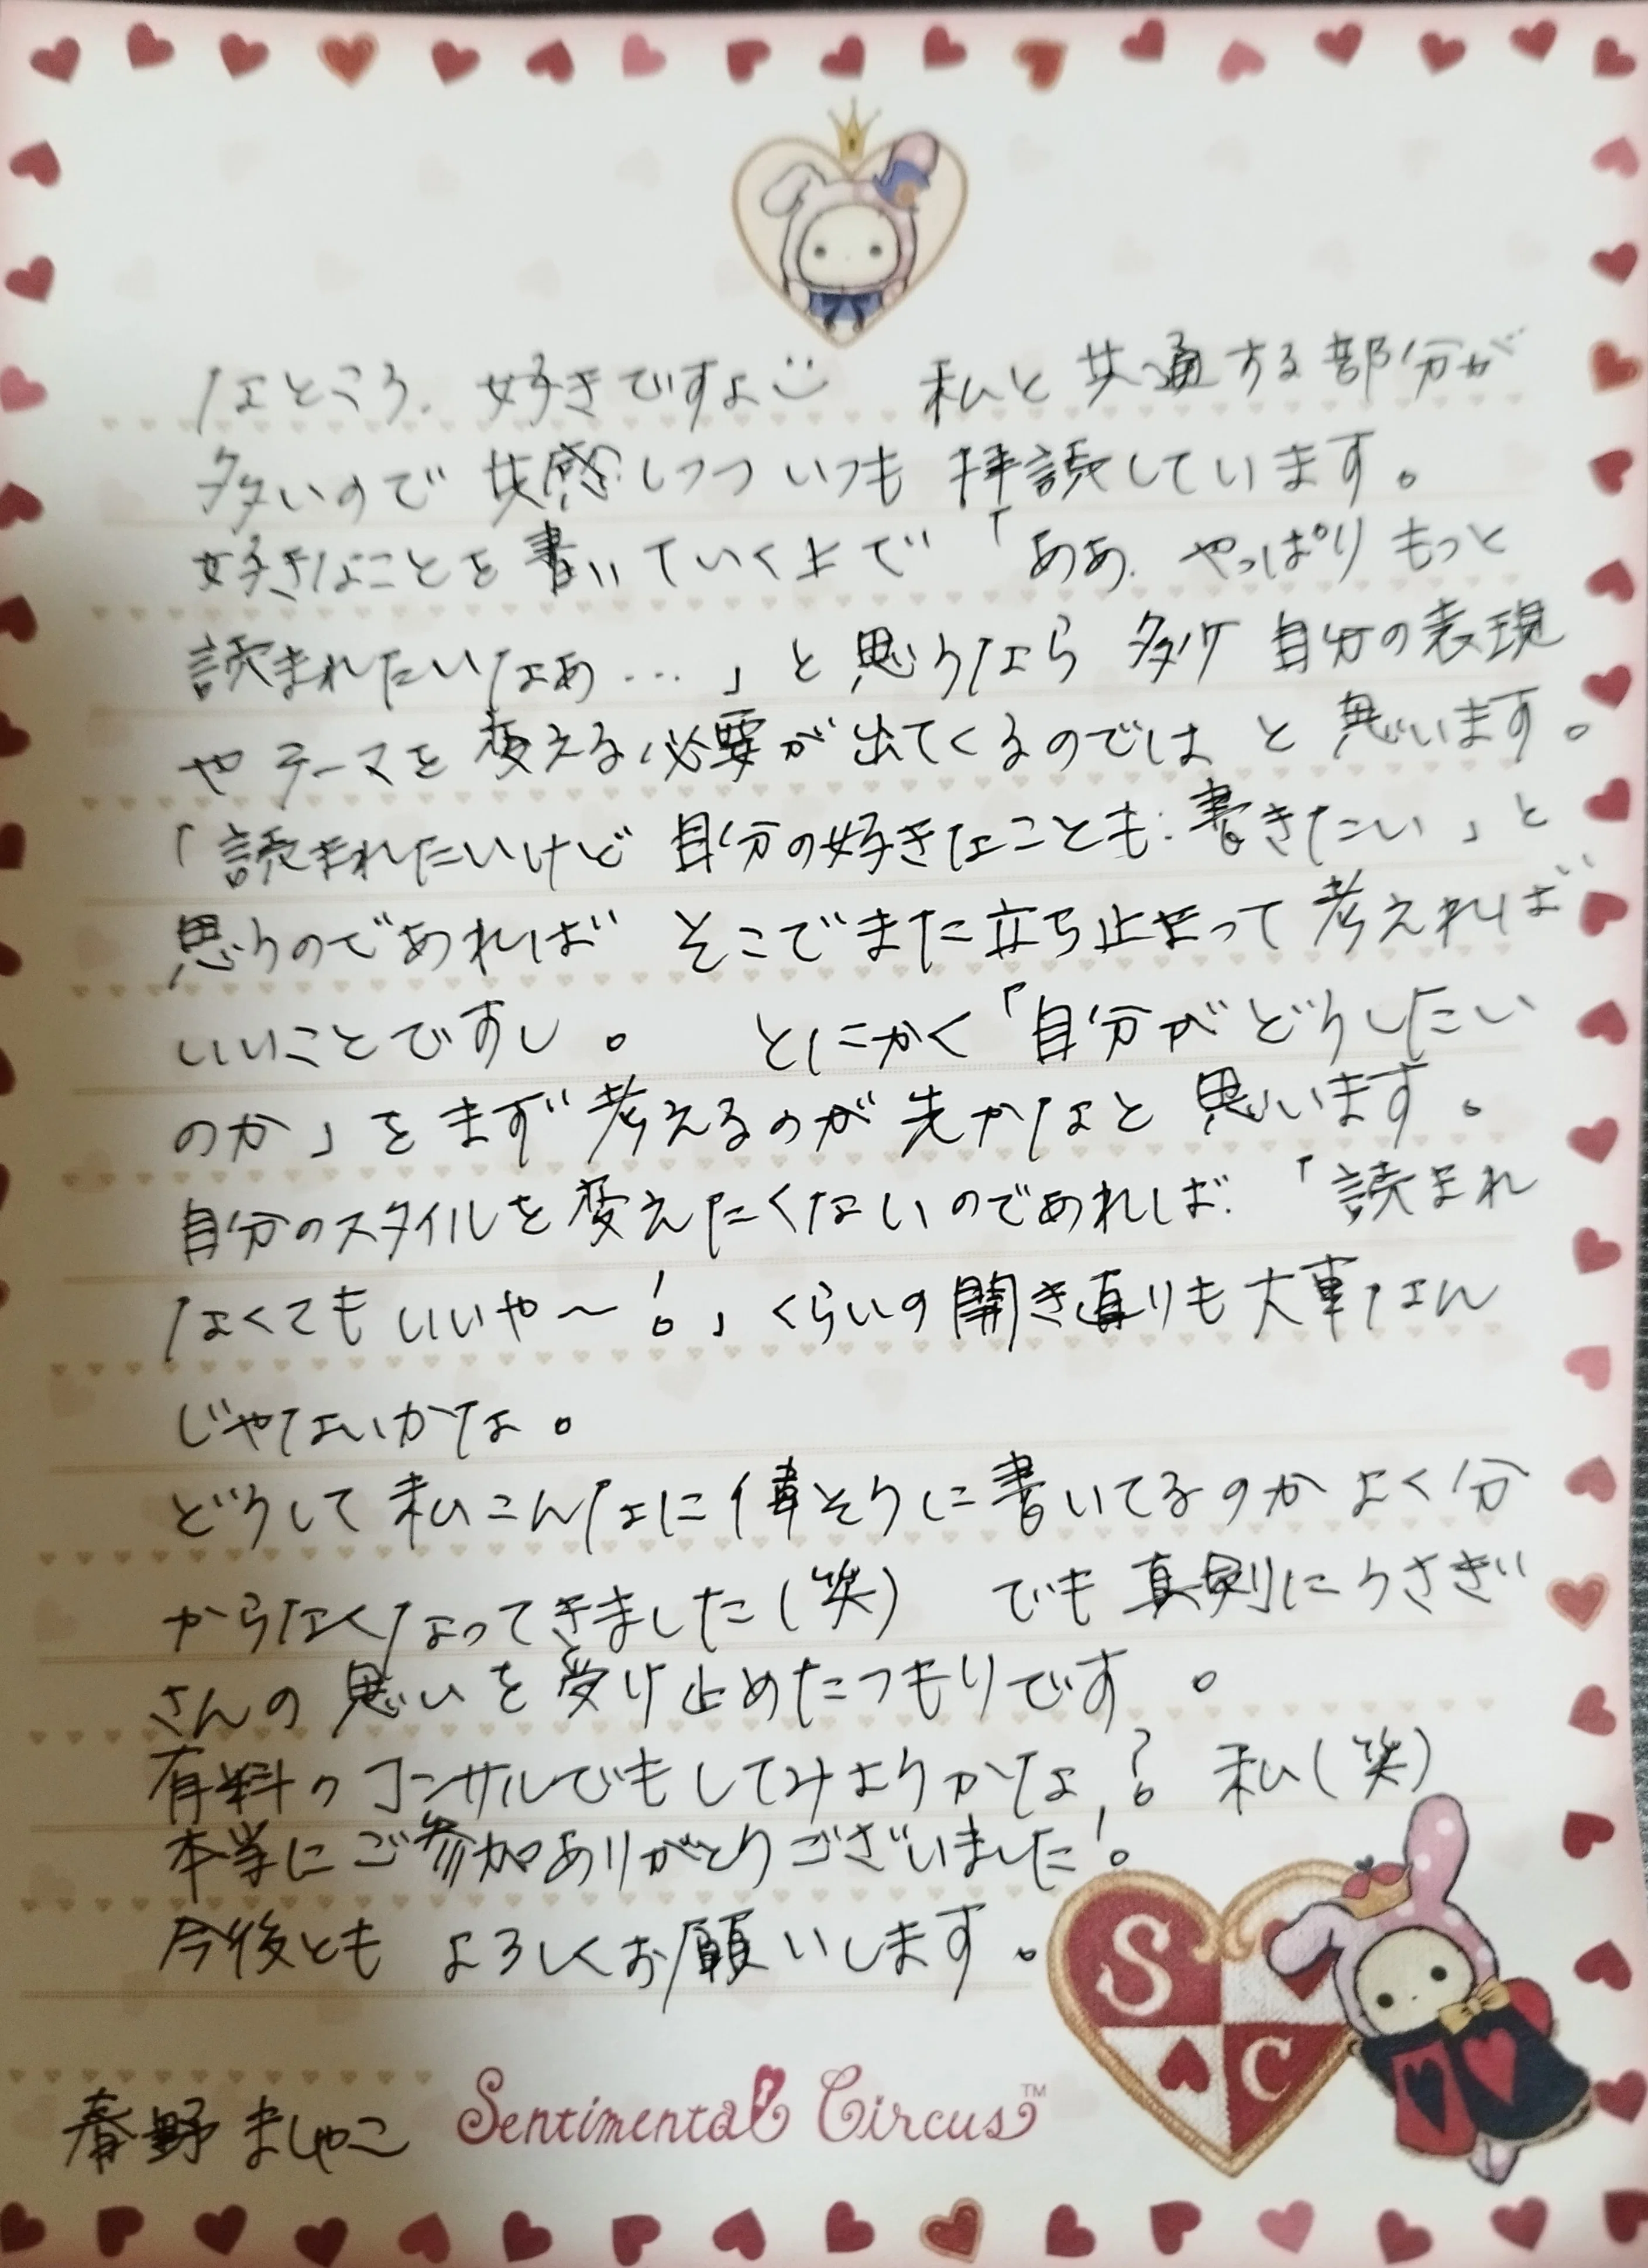 なところ、好きですよ 私と共通する部分が
多いので共感しつついつも拝読しています。
好きなことを書いていく上で「ああ、やっぱりもっと
読まれたいなぁ…」と思うなら多少自分の表現
やテーマを変える必要が出てくるのではと思います。
「読まれたいけど自分の好きなことも書きたい」と
思うのであればそこでまた立ち止まって考えれば
いいことですし。 とにかく「自分がどうしたい
のか」をまず考えるのが先かなと思います。
自分のスタイルを変えたくないのであれば、「読まれ
なくてもいいや〜!」くらいの開き直りも大事なん
じゃないかな。
どうして私こんなに偉そうに書いてるのかよく分
からなくなってきました(笑) でも真剣にうさぎい
さんの思いを受け止めたつもりです。
有料のコンサルでもしてみようかな?私(笑)
本当にご参加ありがとうございました!
今後ともよろしくお願いします。
S
C
春野ましゃこ
Sentimental Circus™